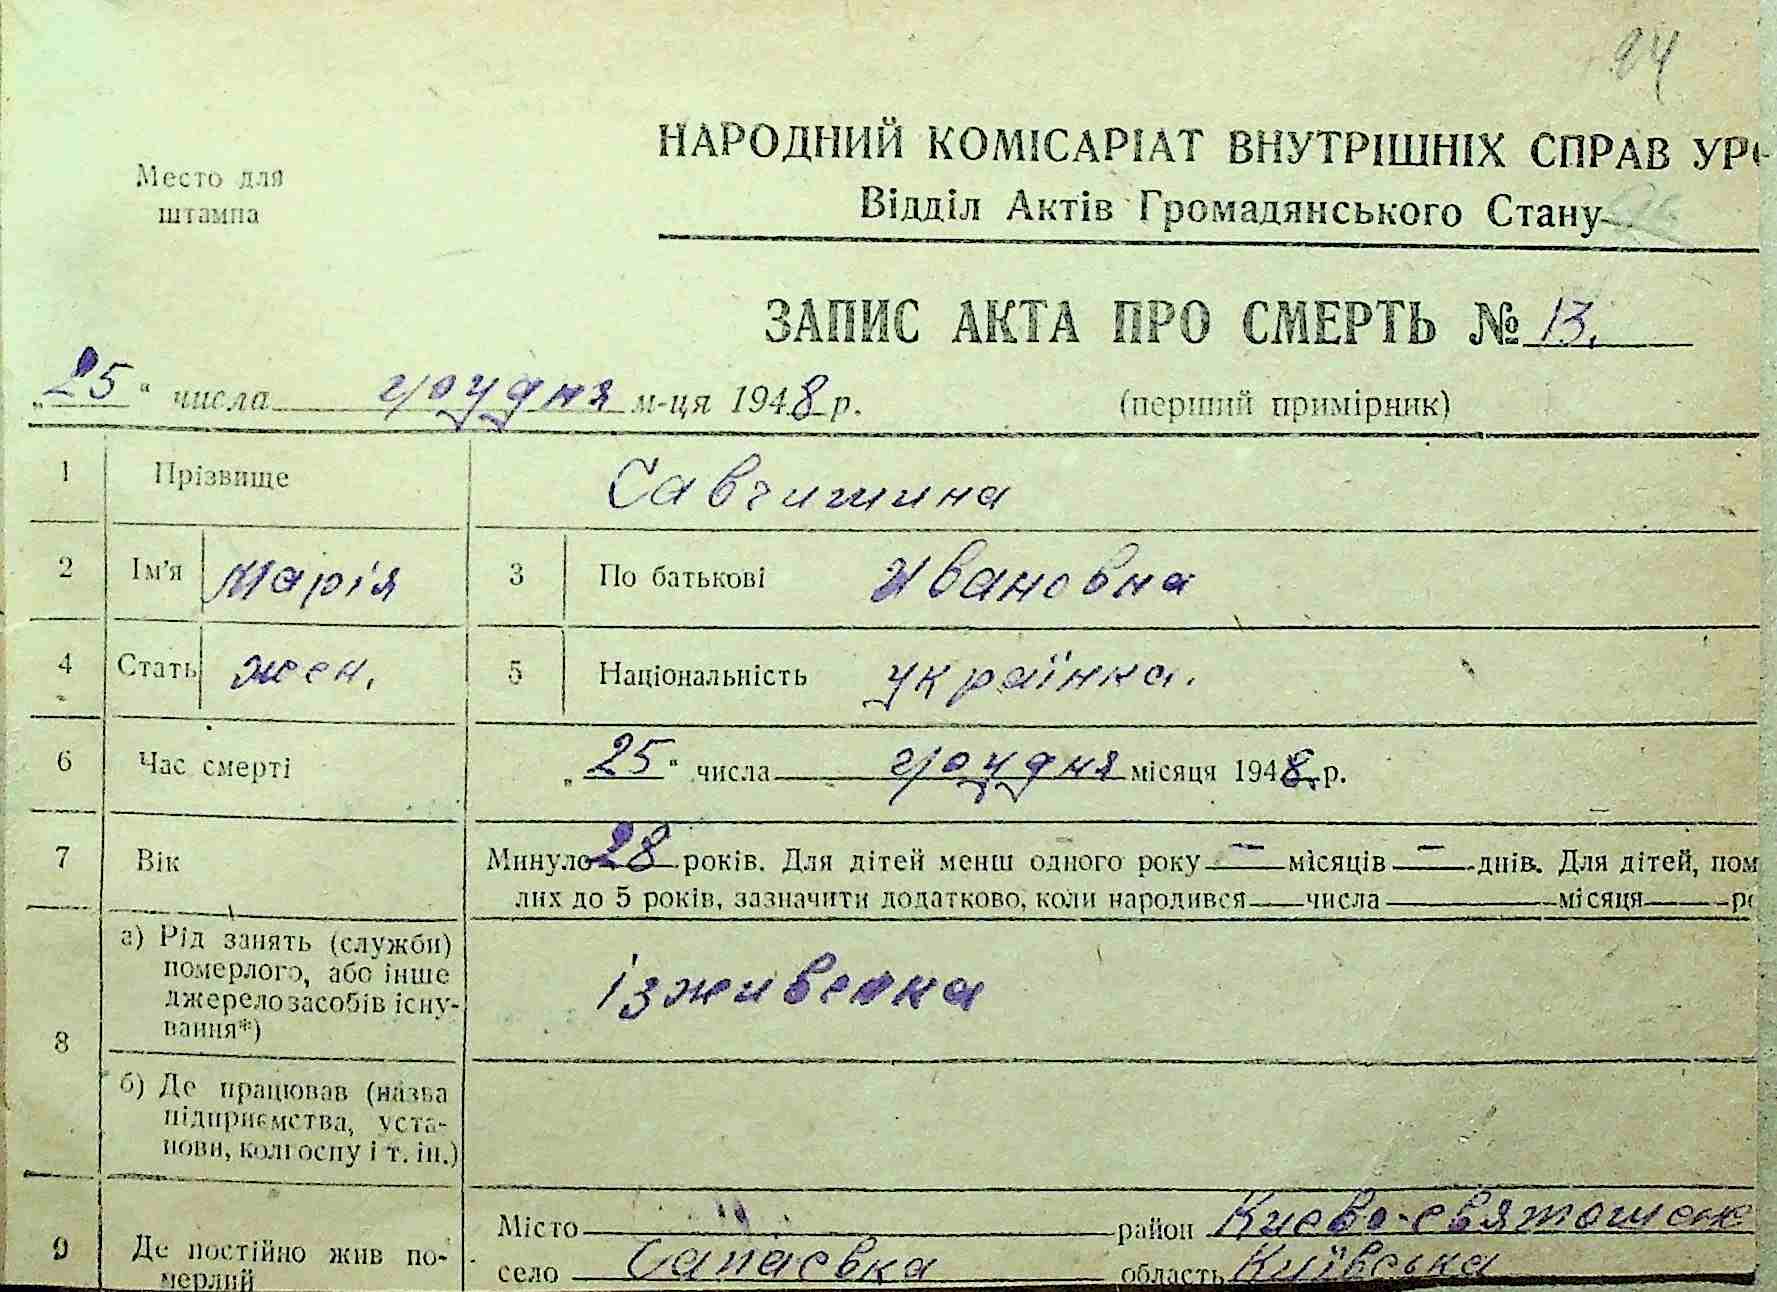 94
НАРОДНИЙ КОМІСАРІАТ ВНУТРІШНІХ СПРАВ УРС
Место для
штампа
Відділ Актів Громадянського Стану
ЗАПИС АКТА ПРО СМЕРТЬ № 13.
„25“ числа грудня м-ця 1948 р. (перший примірник)
1 Прізвище Савчишина
2 Ім'я Марія 3 По батькові Ивановна
4 Стать жен. 5 Національність українка.
6 Час смерті „25“ числа грудня місяця 1948 р.
7 Вік Минуло 28 років. Для дітей менш одного року — місяців — днів. Для дітей, пом
лих до 5 років, зазначити додатково, коли народився числа місяця р
8 а) Рід занять (служби)
померлого, або інше
джерело засобів існу-
вання*) ізживенка
б) Де працював (назва
підприємства, уста-
нови, колгоспу і т. ін.)
9 Де постійно жив по-
мерлий
Місто район Киево-святошенк
село Сапаєвка область Київська